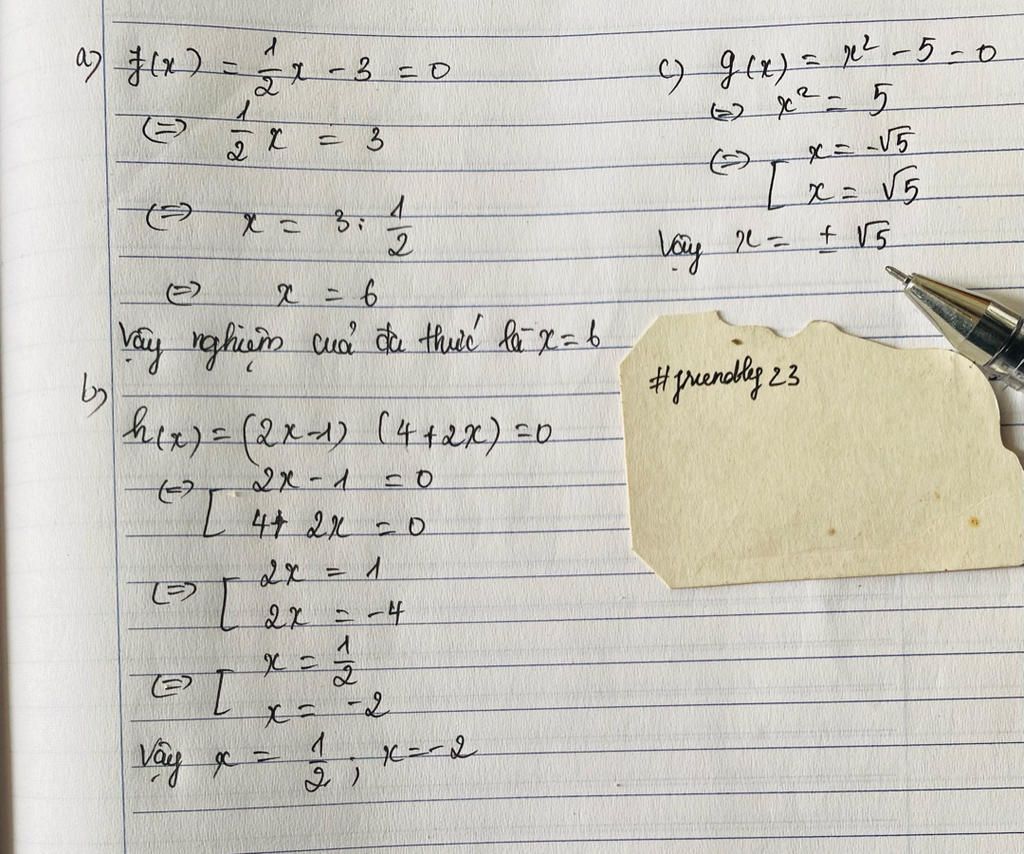 a) f(x) = 1/2 x - 3 = 0
(=) 1/2 x = 3
(=) x = 3 : 1/2
(=) x = 6
Vậy nghiệm cuả đa thức là x = 6
b)
h(x) = (2x-1) (4+2x) = 0
(=) [ 2x - 1 = 0
4 + 2x = 0
(=) [ 2x = 1
2x = -4
(=) [ x = 1/2
x = -2
Vậy x = 1/2 ; x = -2
c) g(x) = x² - 5 = 0
(=) x² = 5
(=) [ x = -√5
x = √5
Vậy x = ± √5